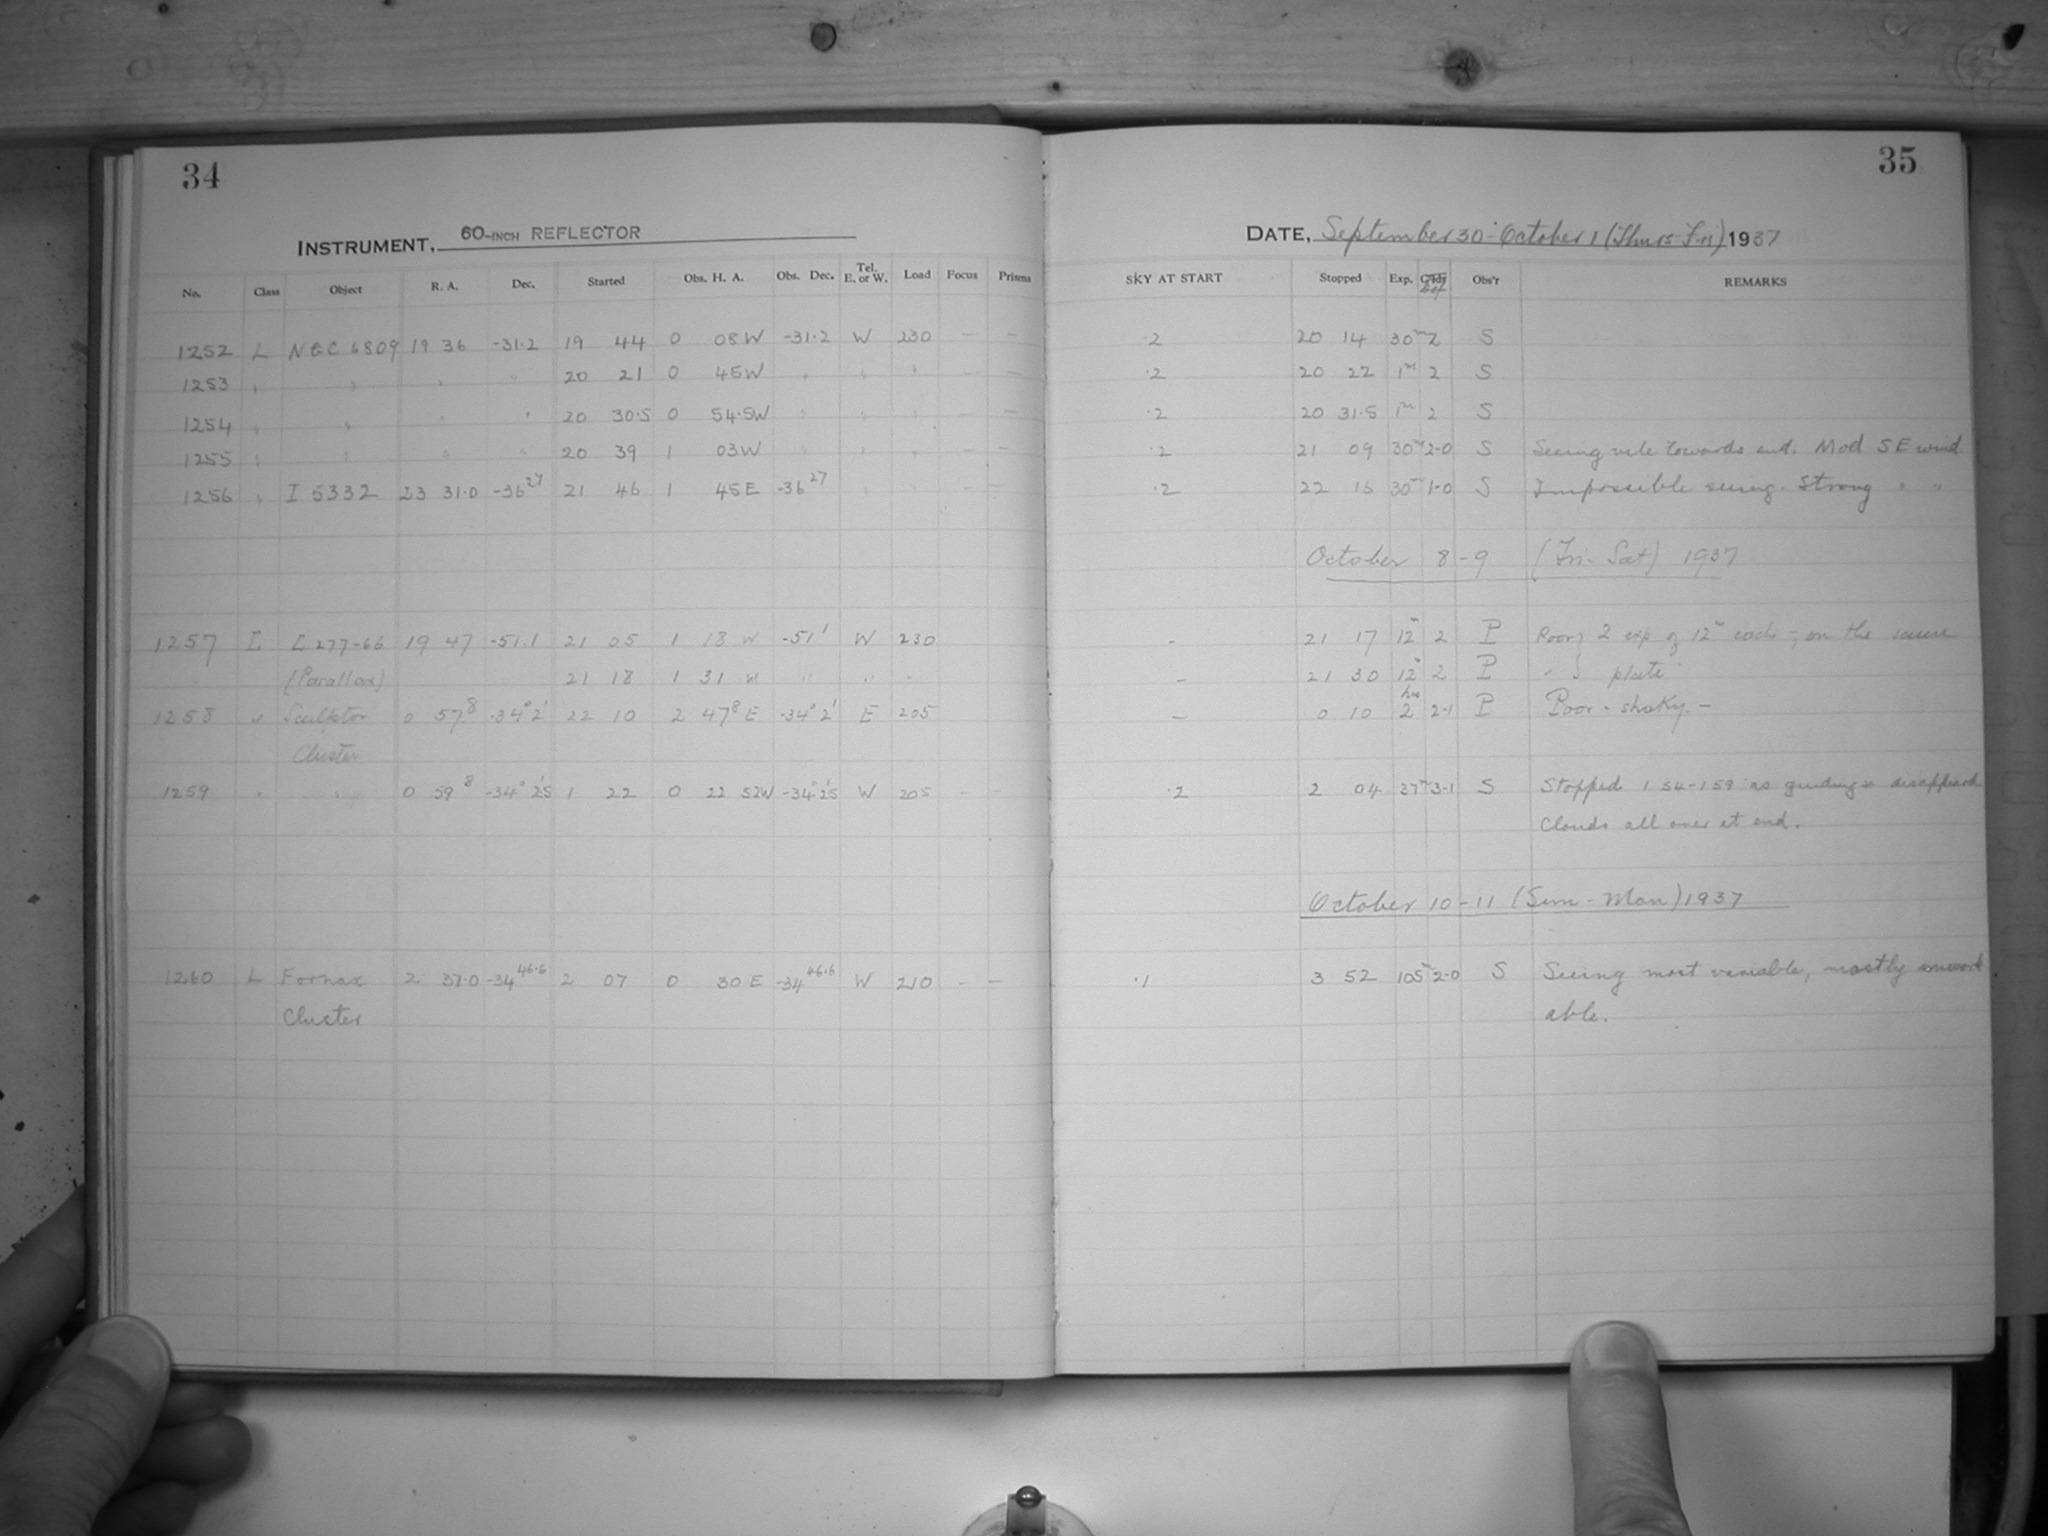 34
INSTRUMENT, 60-INCH REFLECTOR
No. Class Object R. A. Dec. Started Obs. H. A. Obs. Dec. Tel. E. or W. Load Focus Prisms
1252 L NGC 6809 19 36 -31.2 19 44 0 08W -31.2 W 230 — —
1253 " " " " 20 21 0 45W " " " — —
1254 " " " " 20 30.5 0 54.5W " " " — —
1255 " " " " 20 39 1 03W " " " — —
1256 " I 5332 23 31.0 -36 27 21 46 1 45E -36 27 " " — —
1257 -51.1 19 47 21 05 1 18 W -51 1 W 230
(Parallax) 21 18 1 31 W " " "
1258 " Sculptor 0 57.8 -34° 2' 22 10 2 47 8 E -34° 2' E 205
Cluster
1259 " " 0 59 8 -34° 25' 1 22 0 22 52W -34° 25' W 205 — —
1260 L Fornax 2 37.0 -34 46.6 2 07 0 30 E -34 46.6 W 210 — —
Cluster
35
DATE, September 30-October 1 (Thurs-Fri) 1937
SKY AT START Stopped Exp. Def Obs'r REMARKS
.2 20 14 30m 2 S
.2 20 22 1m 2 S
.2 20 31.5 1m 2 S
.2 21 09 30m 2-0 S Seeing vile towards end. Mod SE wind
.2 22 16 30m 1-0 S Impossible seeing. Strong " "
October 8-9 (Fri-Sat) 1937
- 21 17 12m 2 P Poor } 2 exp of 12m each - on the same
- 21 30 12m 2 P " } plate
- 0 10 2 hrs 2-1 P Poor - shaky. -
.2 2 04 37m 3-1 S Stopped 1 54-1 59 as guiding * disappeared
Clouds all over at end.
October 10-11 (Sun-Mon) 1937
.1 3 52 105m 2-0 S Seeing most variable, mostly unwork
able.